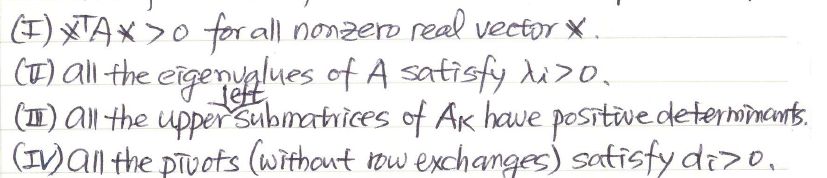 (I) xᵀAx > 0 for all nonzero real vector x.
(II) all the eigenvalues of A satisfy λi > 0.
(III) all the upper left submatrices of AK have positive determinants.
(IV) all the pivots (without row exchanges) satisfy di > 0.